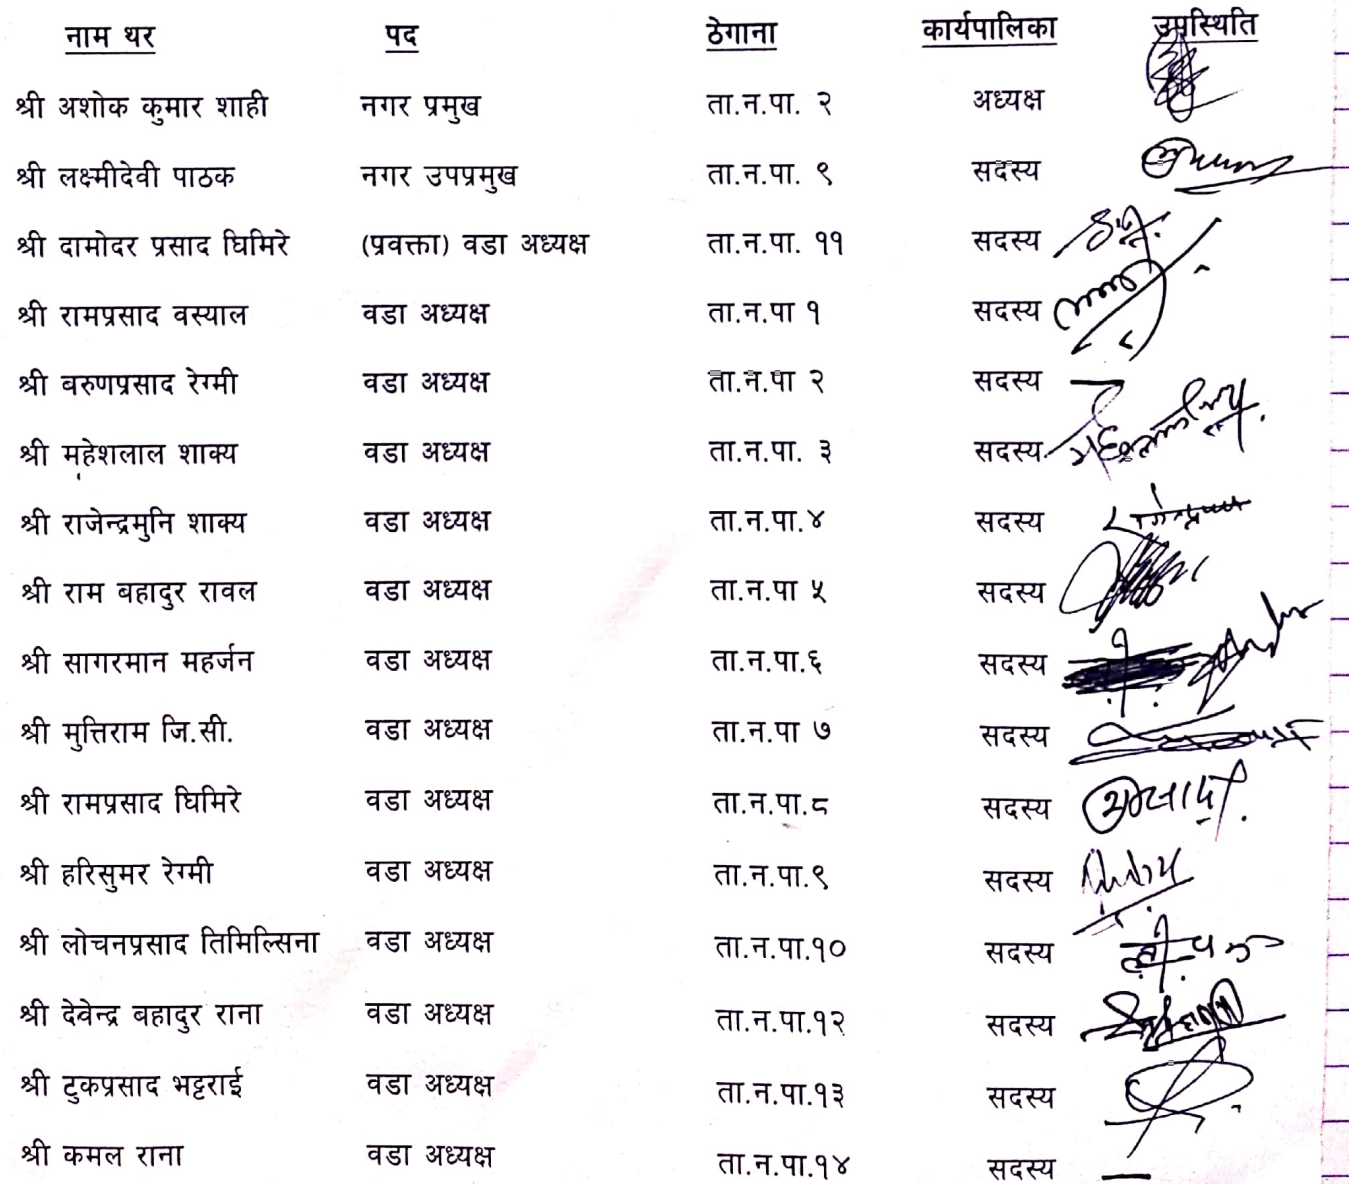 नाम थर पद ठेगाना कार्यपालिका उपस्थिति
श्री अशोक कुमार शाही नगर प्रमुख ता.न.पा. २ अध्यक्ष
श्री लक्ष्मीदेवी पाठक नगर उपप्रमुख ता.न.पा. ९ सदस्य
श्री दामोदर प्रसाद घिमिरे (प्रवक्ता) वडा अध्यक्ष ता.न.पा. ११ सदस्य
श्री रामप्रसाद वस्याल वडा अध्यक्ष ता.न.पा १ सदस्य
श्री बरुणप्रसाद रेग्मी वडा अध्यक्ष ता.न.पा २ सदस्य
श्री महेशलाल शाक्य वडा अध्यक्ष ता.न.पा. ३ सदस्य
श्री राजेन्द्रमुनि शाक्य वडा अध्यक्ष ता.न.पा.४ सदस्य
श्री राम बहादुर रावल वडा अध्यक्ष ता.न.पा ५ सदस्य
श्री सागरमान महर्जन वडा अध्यक्ष ता.न.पा.६ सदस्य
श्री मुत्तिराम जि.सी. वडा अध्यक्ष ता.न.पा ७ सदस्य
श्री रामप्रसाद घिमिरे वडा अध्यक्ष ता.न.पा.८ सदस्य
श्री हरिसुमर रेग्मी वडा अध्यक्ष ता.न.पा.९ सदस्य
श्री लोचनप्रसाद तिमिल्सिना वडा अध्यक्ष ता.न.पा.१० सदस्य
श्री देवेन्द्र बहादुर राना वडा अध्यक्ष ता.न.पा.१२ सदस्य
श्री टुकप्रसाद भट्टराई वडा अध्यक्ष ता.न.पा.१३ सदस्य
श्री कमल राना वडा अध्यक्ष ता.न.पा.१४ सदस्य